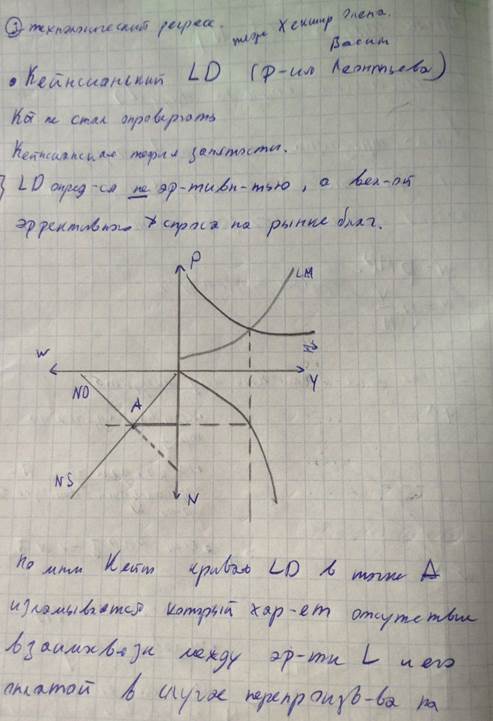 ② технологический регресс.
теор Хекшир Олена.
Васил
• Кейнсианский LD (Р-ил Леонтьева)
Кейнсианская теория занятости.
LD опред-ся не эф-тивн-тью, а вел-ой
эффективного спроса на рынке благ.
P
LM
W
Y
ND
A
NS
N
По мнн Кейн кривая LD в точке A
изламывается который хар-ет отсутствие
взаимосвязи между эф-ти L и его
оплатой в случае перепроизв-ва на